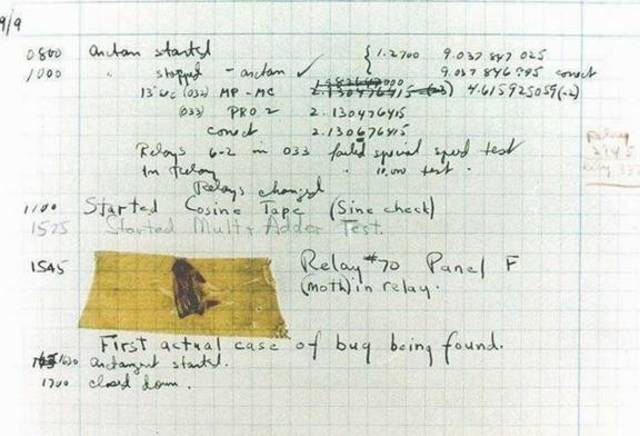 9/9
0800 Antan started { 1.2700 9.037 847 025
1000 " stopped - antan ✓ 9.037 846 995 conect
13"uc (032) MP - MC 2.130476415 (-3) 4.615925059(-2)
(033) PRO 2 2.130476415
conect 2.130676415
Relays 6-2 in 033 failed special speed test
In Relay " 10,000 test.
Relays changed
1100 Started Cosine Tape (Sine check)
1525 Started Mult+ Adder Test.
1545 Relay #70 Panel F
(moth) in relay.
First actual case of bug being found.
1630 antangent started.
1700 closed down.
Relay